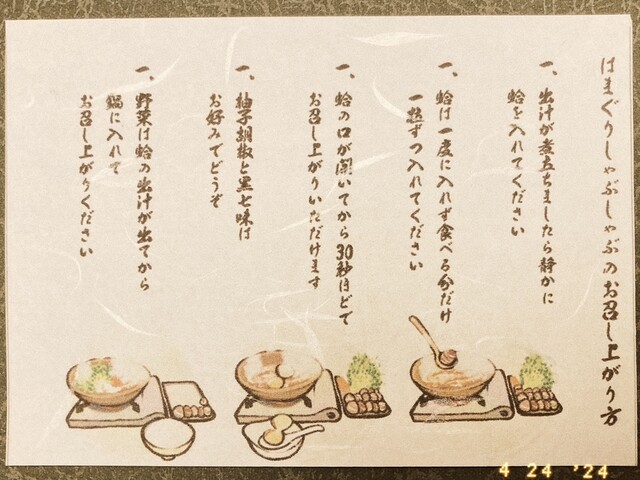 はまぐりしゃぶしゃぶのお召し上がり方
一、出汁が煮立ちましたら静かに
蛤を入れてください
一、蛤は一度に入れず食べる分だけ
一粒ずつ入れてください
一、蛤の口が開いてから30秒ほどで
お召し上がりいただけます
一、柚子胡椒と黒七味は
お好みでどうぞ
一、野菜は蛤の出汁が出てから
鍋に入れて
お召し上がりください
4 24 '24